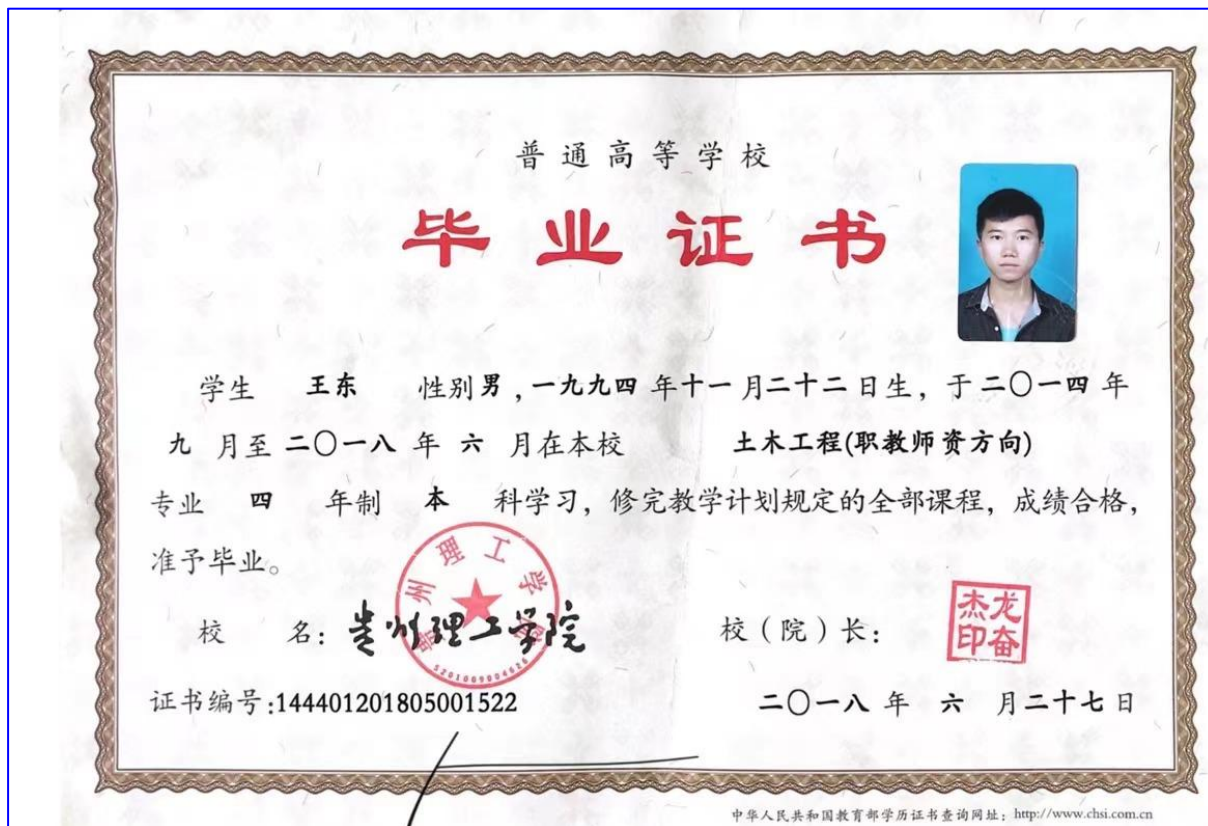 普通高等学校
毕业证书
学生 王东 性别男，一九九四年十一月二十二日生，于二〇一四年
九月至二〇一八年六月在本校 土木工程(职教师资方向)
专业 四 年制 本 科学习，修完教学计划规定的全部课程，成绩合格，
准予毕业。
校 名：贵州理工学院
贵州理工学院
5201009004626
校（院）长：
龙奋杰印
证书编号:144401201805001522
二〇一八年 六 月二十七日
中华人民共和国教育部学历证书查询网址：http://www.chsi.com.cn